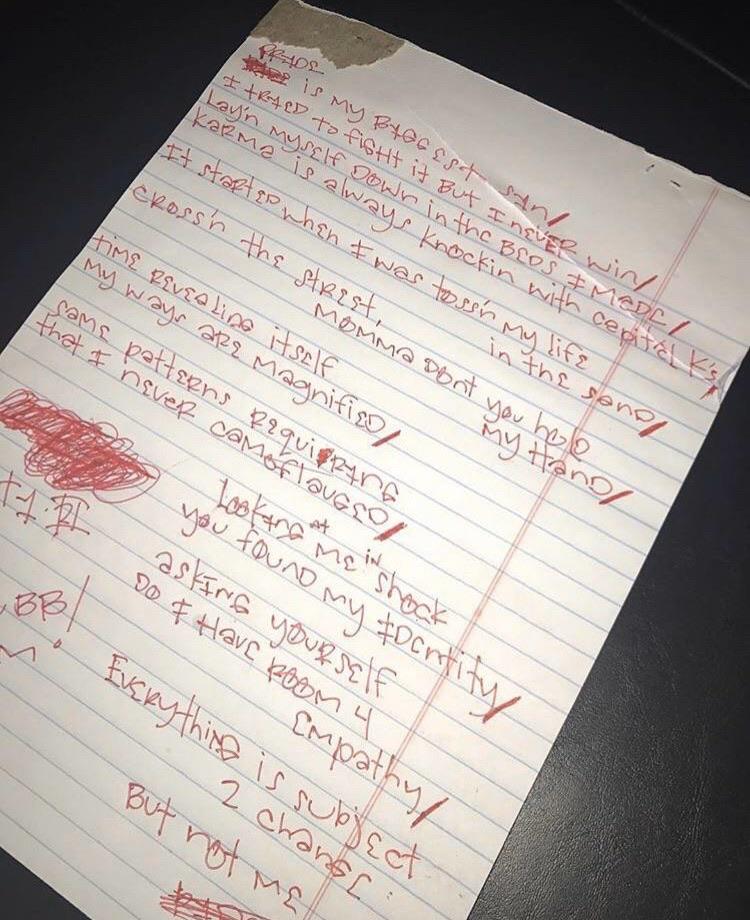 PRIDE
is my BIGGEST SIN/
I TRIED to fight it But I nEVER win/
Lay'n myself Down in the BEDS I MADE/
karma is always knockin with capital K's,
It started when I was toss'n my life
in the sand/
cross'n the street,
momma Dont you hold
my Hand/
time REVEALING itself
my ways are magnified/
same patterns REQUIRING
that I never camoflauged/
Looking at me in shock
you found my IDentity/
asking yourself
Do I Have ROOM 4
Empathy/
Everything is subject
2 change:
But not me
BB/